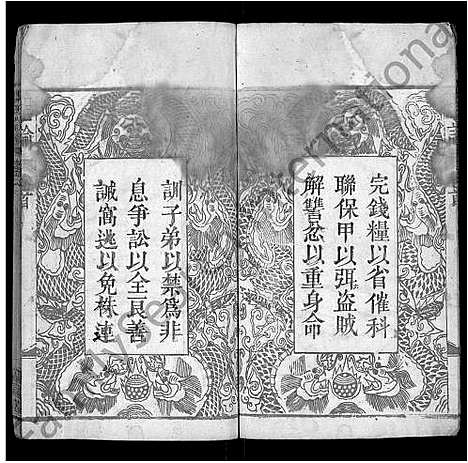 完錢糧以省催科
聯保甲以弭盜賊
解讐忿以重身命
訓子弟以禁為非
息爭訟以全良善
誡窩逃以免株連